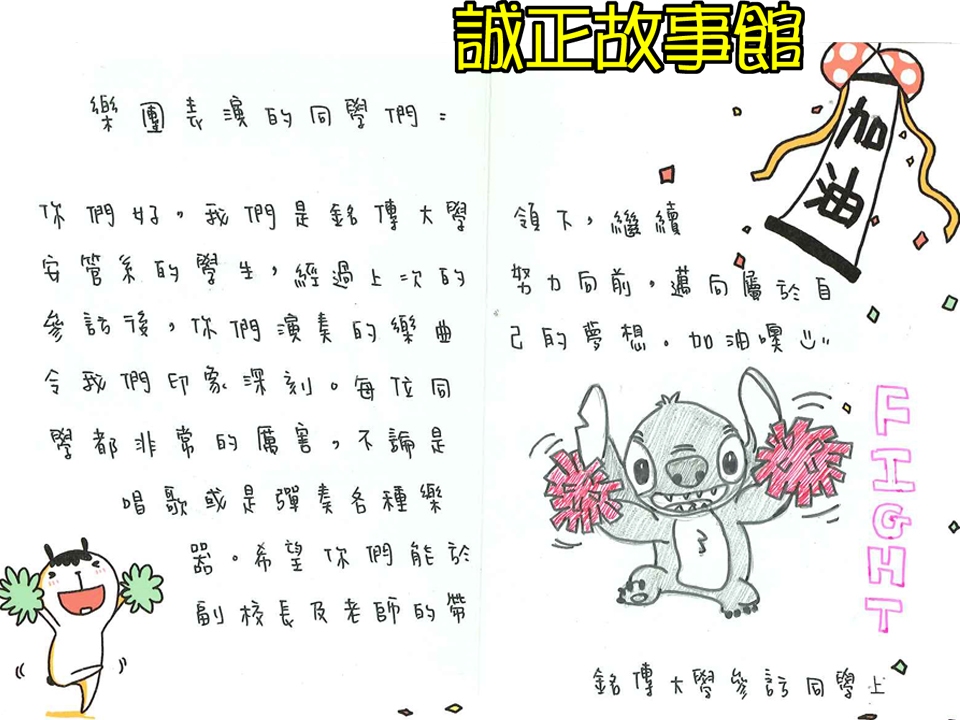 誠正故事館
加油
樂團表演的同學們:
你們好,我們是銘傳大學
安管系的學生,經過上次的
參訪後,你們演奏的樂曲
令我們印象深刻。每位同
學都非常的厲害,不論是
唱歌或是彈奏各種樂
器。希望你們能於
副校長及老師的帶
領下,繼續
努力向前,邁向屬於自
己的夢想。加油噢
FIGHT
銘傳大學參訪同學上